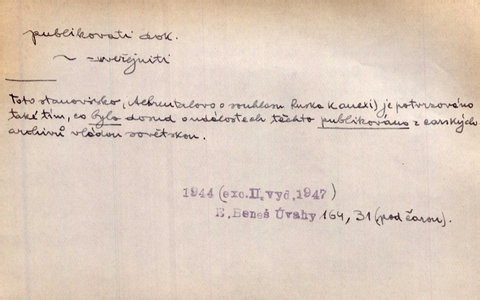 publikovati dok.
~ zveřejniti
Toto stanovisko (Aehrentalovo o souhlasu Ruska k anexi) je potvrzováno
také tím, co bylo dosud o událostech těchto publikováno z carských
archivů vládou sovětskou.
1944 (exc. II. vyd. 1947)
E. Beneš Úvahy 164, 31 (pod čarou).